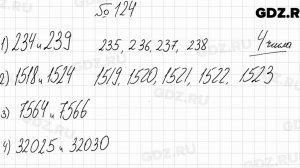 № 124
GDZ.RU
1) 234 и 239 235, 236, 237, 238 4 числа
2) 1518 и 1524 1519, 1520, 1521, 1522, 1523
3) 7564 и 7566
4) 32025 и 32030
GDZ.RU